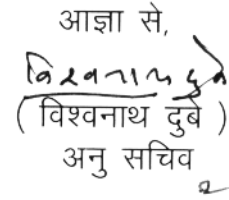 आज्ञा से,
विश्वनाथ दुबे
( विश्वनाथ दुबे )
अनु सचिव